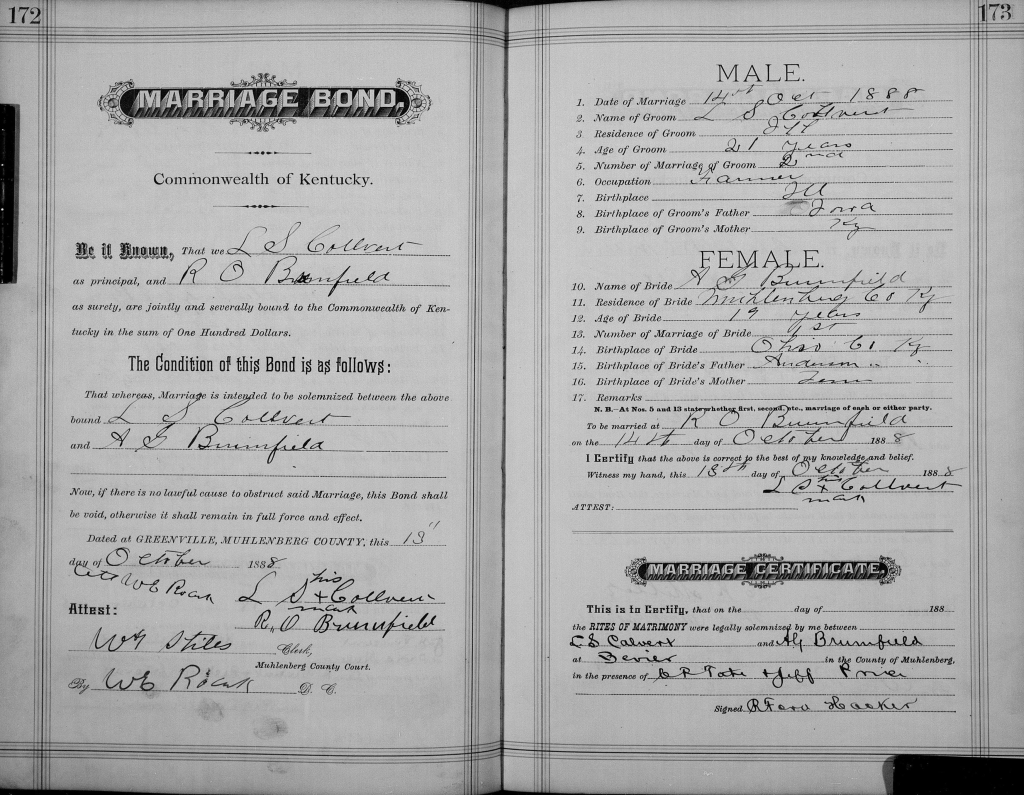 172
MARRIAGE BOND,
Commonwealth of Kentucky.
Be it Known, That we L S Collvert
as principal, and R O Brumfield
as surety, are jointly and severally bound to the Commonwealth of Ken-
tucky in the sum of One Hundred Dollars.
The Condition of this Bond is as follows:
That whereas, Marriage is intended to be solemnized between the above
bound L S Collvert
and A G Brumfield
Now, if there is no lawful cause to obstruct said Marriage, this Bond shall
be void, otherwise it shall remain in full force and effect.
Dated at GREENVILLE, MUHLENBERG COUNTY, this 13"
day of October 1888
Att W E Roark
L S his x mark Collvert
Attest:
R. O Brumfield
W G Stiles Clerk,
Muhlenberg County Court.
By W E Roark D. C.
173
MALE.
1. Date of Marriage 14th Oct 1888
2. Name of Groom L S Collvert
3 Residence of Groom
4. Age of Groom 21 years
5. Number of Marriage of Groom 2nd
6. Occupation Farmer
7. Birthplace Ill
8. Birthplace of Groom's Father Iowa
9. Birthplace of Groom's Mother Ky
FEMALE.
10. Name of Bride A G Brumfield
11. Residence of Bride Muhlenberg Co Ky
12. Age of Bride 19 years
13. Number of Marriage of Bride 1st
14. Birthplace of Bride Ohio Co Ky
15. Birthplace of Bride's Father Anderson " "
16. Birthplace of Bride's Mother Tenn
17. Remarks
N. B.—At Nos. 5 and 13 state whether first, second, etc., marriage of each or either party.
To be married at R O Brumfield
on the 14th day of October 1888
I Certify that the above is correct to the best of my knowledge and belief.
Witness my hand, this 13th day of October 1888
L S his x mark Collvert
ATTEST:
MARRIAGE CERTIFICATE.
This is to Certify, that on the day of 188
the RITES OF MATRIMONY were legally solemnized by me between
L S Calvert and A G Brumfield
at Bevier in the County of Muhlenberg,
in the presence of Tate & Jeff Price
Signed Hacker